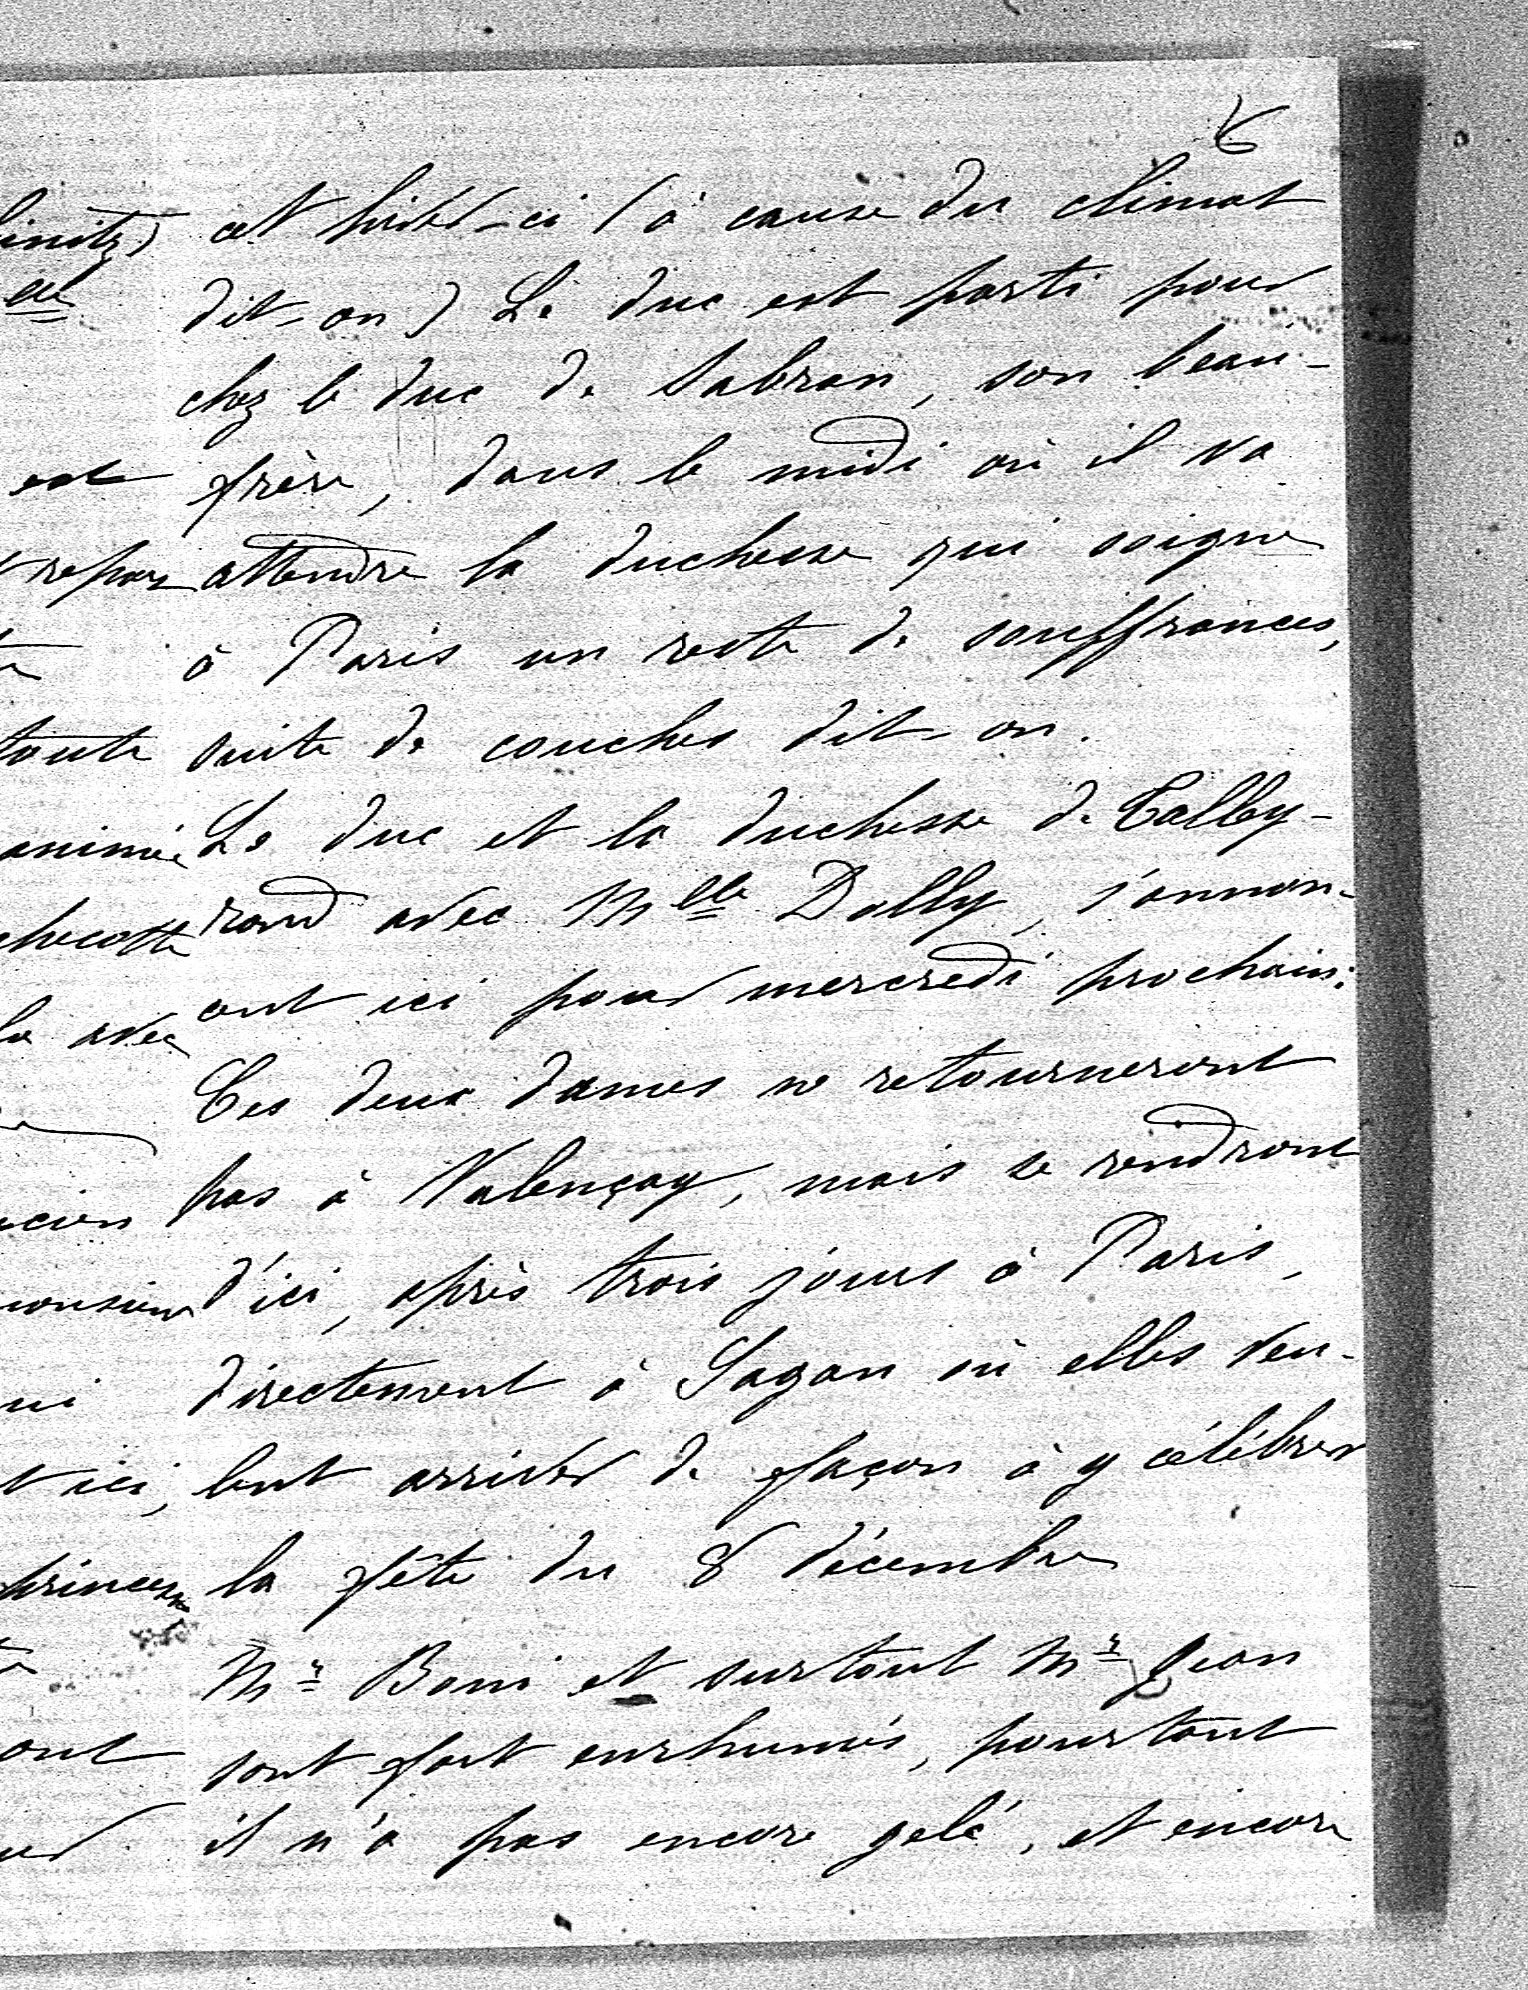 6
cet hiver-ci (à cause du climat
dit-on) Le duc est parti pour
chez le duc de Sabran, son beau-
frère, dans le midi où il va
attendre la duchesse qui soigne
à Paris un reste de souffrances,
suite de couches dit-on.
Le duc et la duchesse de Talley-
rand avec Mlle Dolly, s'annon-
cent ici pour mercredi prochain:
Ces deux dames ne retourneront
pas à Valençay, mais se rendront
d'ici, après trois jours à Paris,
directement à Sagan où elles veu-
lent arriver de façon à y célébrer
la fête du 8 décembre
Mr Boni et surtout Mr Jean
sont fort enrhumés, pourtant
il n'a pas encore gelé, et encore